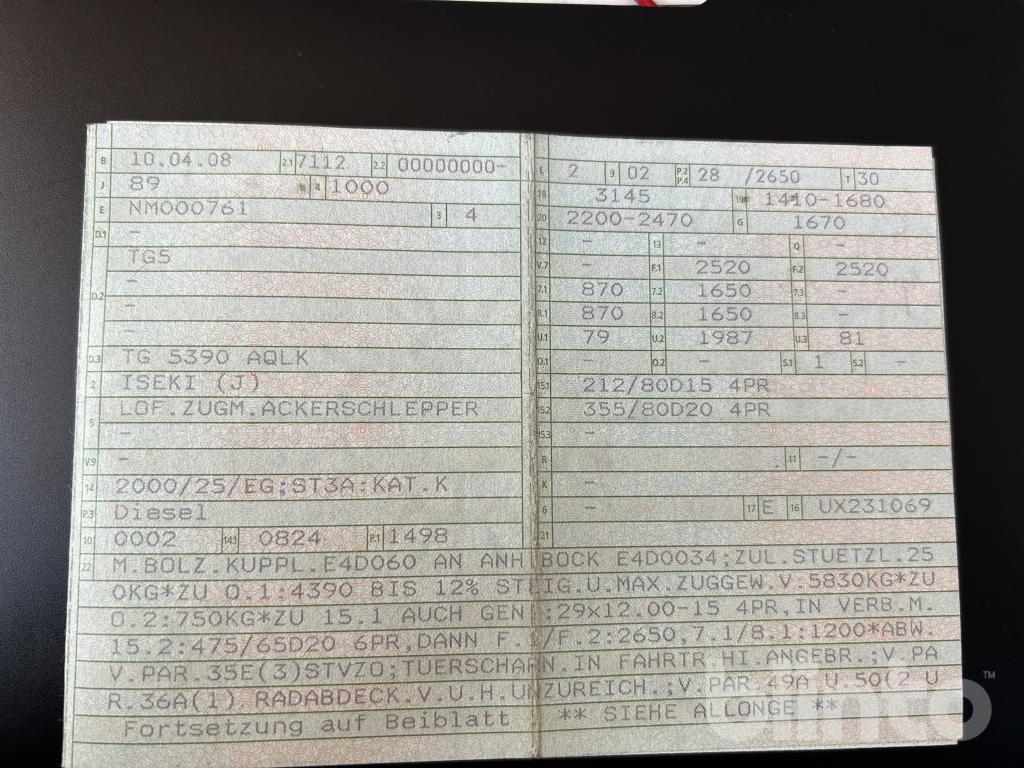 B 10.04.08 2.1 7112 2.2 00000000-
J 89 4 1000
E NM000761 3 4
D.1 -
TG5
D.2 -
-
-
D.3 TG 5390 AQLK
2 ISEKI (J)
5 LOF.ZUGM.ACKERSCHLEPPER
-
V.9 -
14 2000/25/EG;ST3A:KAT.K
P.3 Diesel
10 0002 14.1 0824 P.1 1498
L 2 9 02 P.2 P.4 28 /2650 T 30
18 3145 19 1410-1680
20 2200-2470 G 1670
12 - 13 - Q -
V.7 - F.1 2520 F.2 2520
7.1 870 7.2 1650 7.3 -
8.1 870 8.2 1650 8.3 -
U.1 79 U.2 1987 U.3 81
O.1 - O.2 - S.1 1 S.2 -
15.1 212/80D15 4PR
15.2 355/80D20 4PR
15.3 -
R 11 -/-
K -
6 - 17 E 16 UX231069
21
22 M.BOLZ.KUPPL.E4D060 AN ANHBOCK E4D0034;ZUL.STUETZL.25
0KG*ZU O.1:4390 BIS 12% STEIG.U.MAX.ZUGGEW.V:5830KG*ZU
O.2:750KG*ZU 15.1 AUCH GEN.:29x12.00-15 4PR,IN VERB.M.
15.2:475/65D20 6PR,DANN F.1/F.2:2650,7.1/8.1:1200*ABW.
V.PAR.35E(3)STVZO;TUERSCHARN.IN FAHRTR.HI.ANGEBR.;V.PA
R.36A(1) RADABDECK.V.U.H.UNZUREICH.;V.PAR.49A U.50(2 U
Fortsetzung auf Beiblatt ** SIEHE ALLONGE **